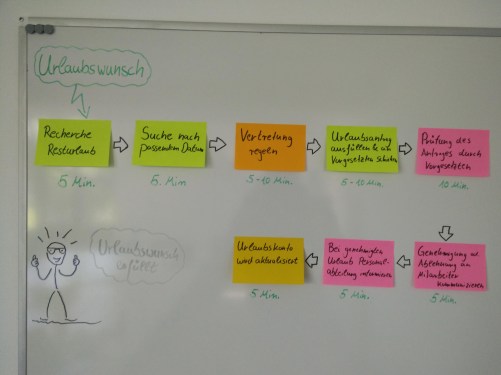 Urlaubswunsch
Recherche
Resturlaub
Suche nach
passendem Datum
Vertretung
regeln
Urlaubsantrag
ausfüllen & an
Vorgesetzten schicken
Prüfung des
Antrages durch
Vorgesetzten
5 Min.
5 Min
5-10 Min.
5-10 Min.
10 Min.
Urlaubswunsch
erfüllt
Urlaubskonto
wird aktualisiert
Bei genehmigten
Urlaub Personal-
abteilung informieren
Genehmigung od.
Ablehnung an
Mitarbeiter
kommunizieren
5 Min.
5 Min.
5 Min.